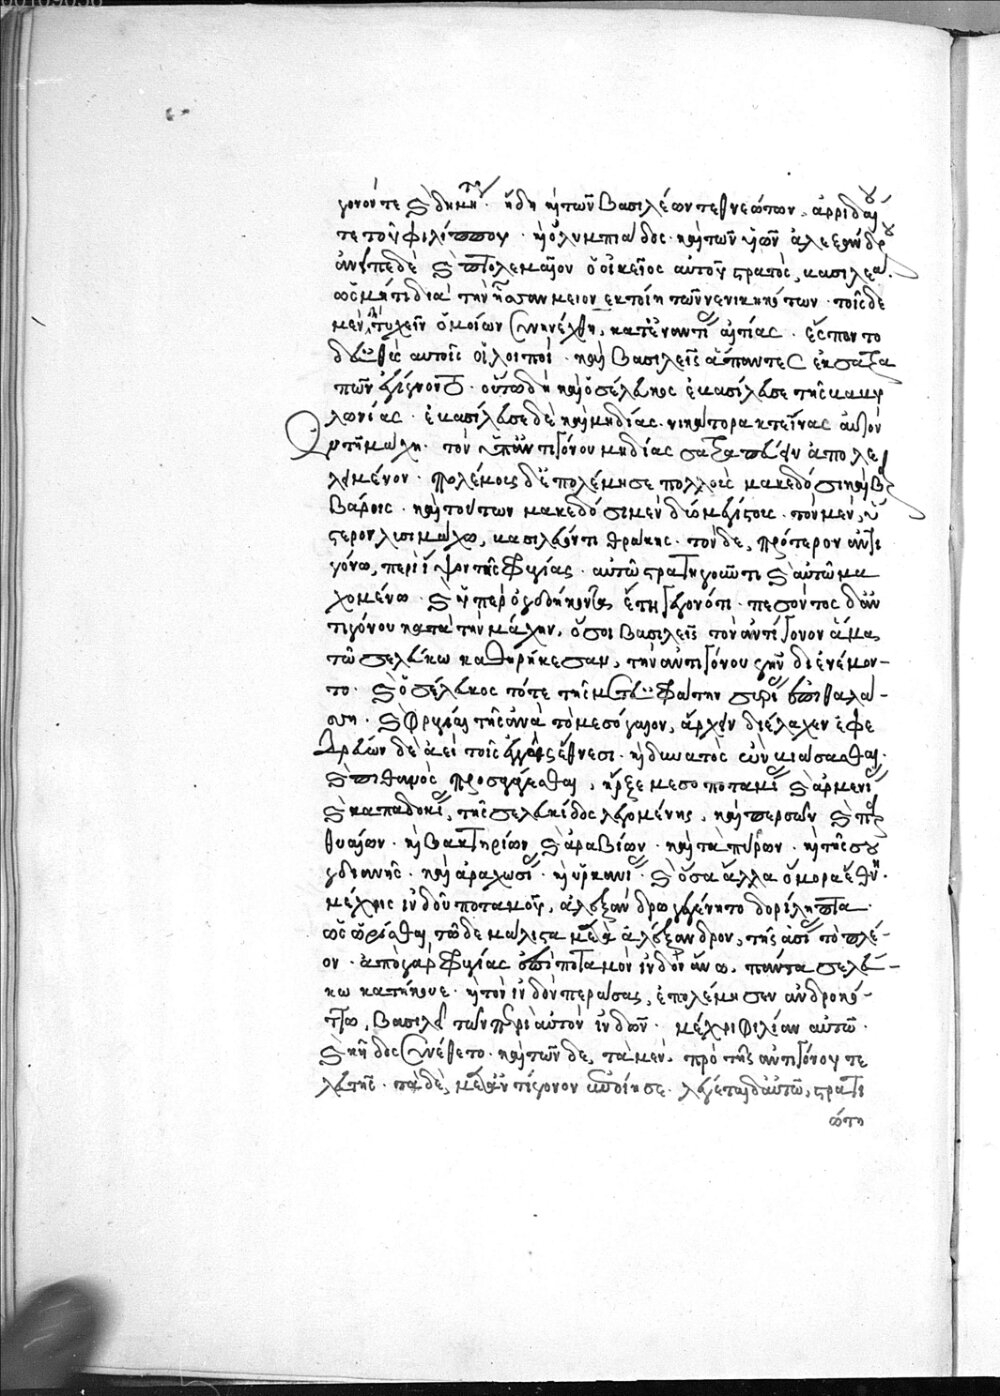 γονότες κ δημοτι· ἤδη κ τῶν βασιλέων τεθνεώτων, ἀρριδαίου
τε τοῦ φιλίππου· κ ὀλυμπιάδος· καὶ τῶν υἱῶν ἀλεξάνδρου
ἀνεῖπε δὲ κ πτολεμαῖον ὁ οἰκεῖος αὐτοῦ στρατὸς, βασιλέα.
ὡς μήτι διὰ τὴν ἧσσαν μειονεκτοίη τῶν νενικηκότων· τοῖσδε
μὲν δὴ τυχεῖν ὁμοίων συνηνέχθη, κατ' ἐναντίας αἰτίας· ἕσποντο
δ' εὐθὺς αὐτοῖς οἱ λοιποί· καὶ βασιλεῖς ἅπαντες ἐκ σατρα
πῶν ἐγίγνοντο· οὕτω δὴ καὶ ὁ σέλευκος ἐβασίλευσε τῆς βαβυ
λωνίας· ἐβασίλευσε δὲ καὶ μηδίας· νικάτορα κτείνας αὐτὸν
ἐν τῆ μάχη· τὸν ὑπ' ἀντιγόνου μηδίας σατραπεύειν ἀπολε
λειμένον· πολέμους δ' ἐπολέμησε πολλοὺς μακεδόσι καὶ βαρ
βάροις· καὶ τούτων μακεδόσι μὲν δύο μεγίστους· τὸν μὲν, ὕ
στερον λυσιμάχω, βασιλεύοντι θράκης· τὸν δὲ, πρότερον ἀντι
γόνω, περὶ ἵψον τῆς φρυγίας· αὐτῶ στρατηγοῦντι κ αὐτῶ μα
χομένω· κ ὑπὲρ ὀγδοήκοντα ἔτη γεγονότι· πεσόντος δ' ἀν
τιγόνου κατὰ τὴν μάχην, ὅσοι βασιλεῖς τὸν ἀντίγονον ἅμα
τῶ σελεύκω καθηρήκεσαν, τὴν ἀντιγόνου γῆν διενέμον-
το· κ ὁ σέλευκος τότε τῆς μετ' εὐφράτην συρίας ἐπὶ θαλά-
σση· κ φρυγίας τῆς ἀνὰ τὸ μεσόγαιον, ἄρχειν διέλαχεν· ἐφε
δρεύων δὲ ἀεὶ τοῖς ἐγγὺς ἔθνεσι· κ δυνατὸς ὢν βιάσασθαι·
κ πιθανὸς προσαγαγέσθαι, ἦρξε μεσοποταμίας κ ἀρμενίας
κ καπαδοκίας, τῆς σελευκίδος λεγομένης, καὶ περσῶν κ παρ
θυαίων· κ βακτρίων κ ἀραβίων· καὶ ταπύρων· κ τῆς σο
γδιανῆς· καὶ ἀραχωσίας· κ ὑρκανίας· κ ὅσα ἄλλα ὅμορα ἔθνη·
μέχρις ἰνδοῦ ποταμοῦ, ἀλεξάνδρω γεγένητο δορίληπτα·
ὡς ὡρίσθαι τῶδε μάλιστα μετὰ ἀλέξανδρον, τῆς ἀσίας τὸ πλέ-
ον· ἀπὸ γὰρ φρυγίας ἐπὶ ποταμὸν ἰνδὸν ἄνω, πάντα σελεύ-
κω κατήκουε· κ τὸν ἰνδὸν περάσας, ἐπολέμησεν ἀνδροκό-
ττω, βασιλεῖ τῶν περὶ αὐτὸν ἰνδῶν· μέχρι φιλίαν αὐτῶ·
κ κῆδος συνέθετο· καὶ τῶνδε, τὰ μὲν, πρὸ τῆς ἀντιγόνου τε
λευτῆς· τὰ δὲ, μετ' ἀντίγονον ἐποίησε· λέγεται δ' αὐτῶ, στρατι
ώτη